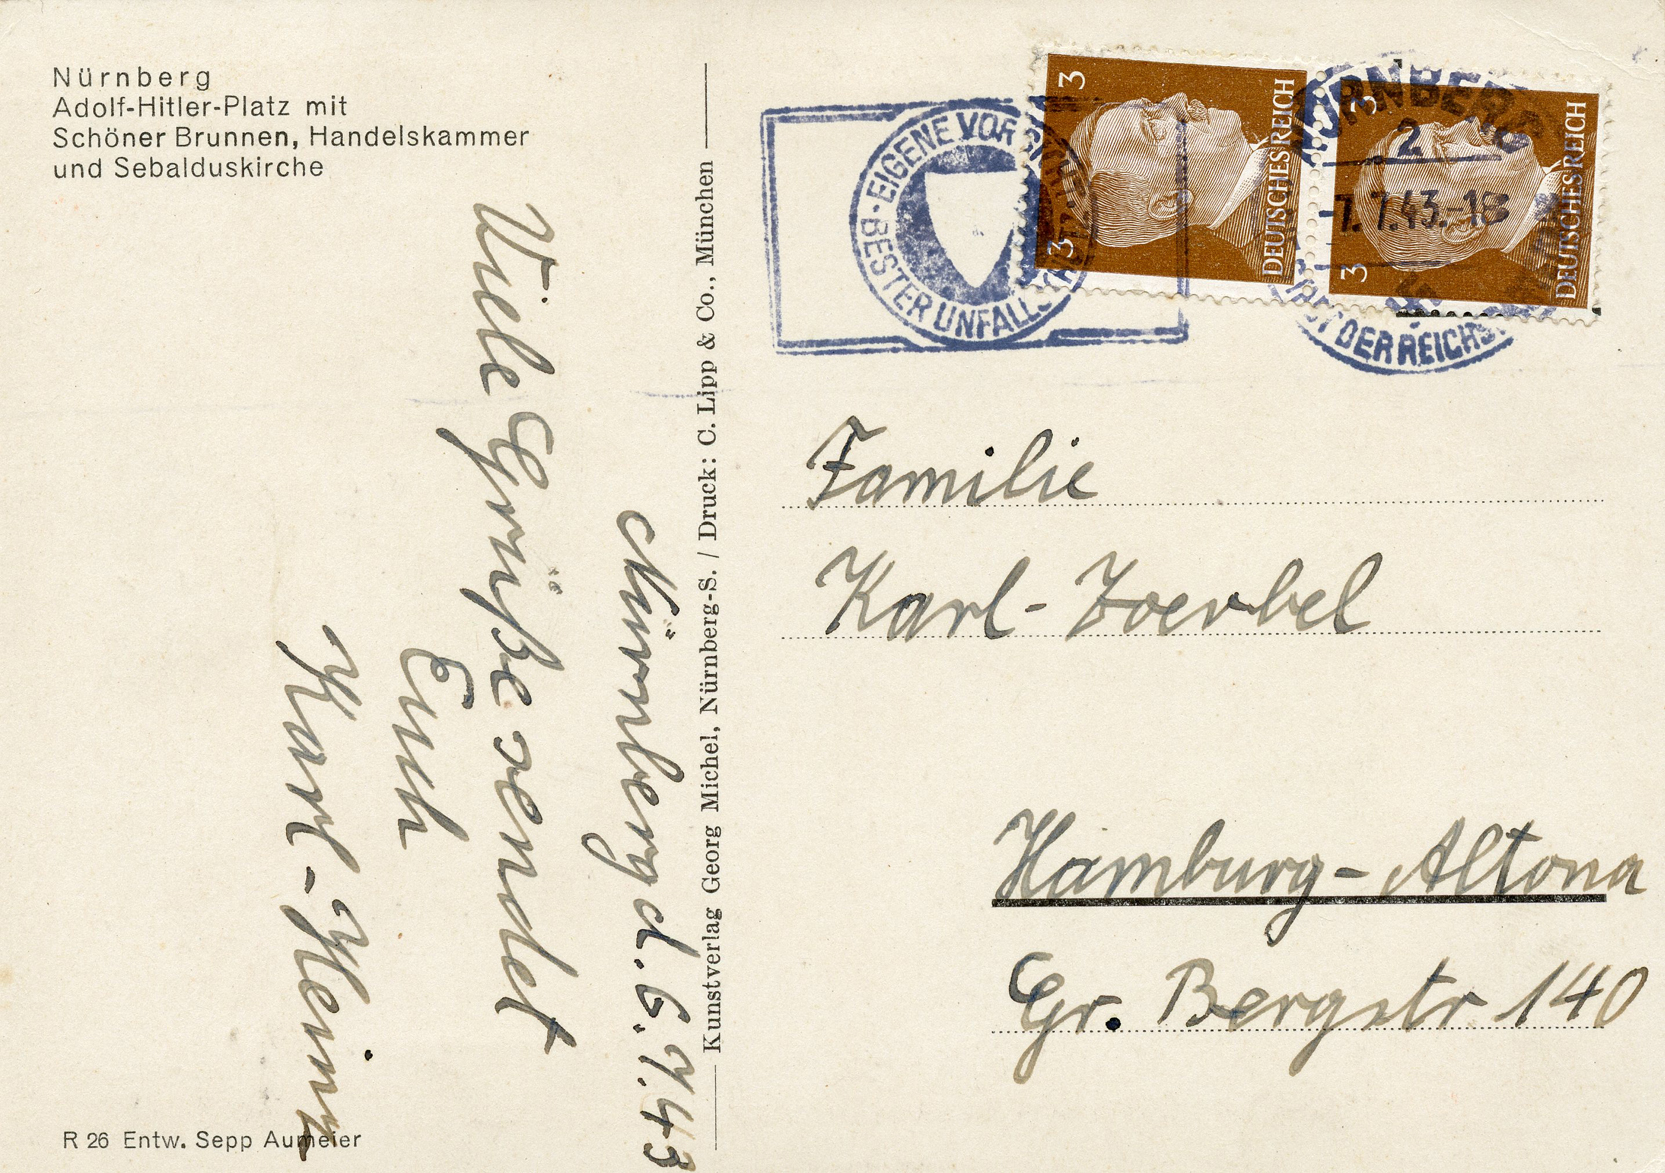 Nürnberg
Adolf-Hitler-Platz mit
Schöner Brunnen, Handelskammer
und Sebalduskirche
Nürnberg d. 6.7.43
Viele Grüße sendet
Euch
Karl-Heinz
R 26 Entw. Sepp Aumeier
Kunstverlag Georg Michel, Nürnberg-S. / Druck: C. Lipp & Co., München
EIGENE VORSICHT
BESTER UNFALLSCHUTZ
3
3
DEUTSCHES REICH
3
3
DEUTSCHES REICH
NÜRNBERG
2
7.7.43.-18
DER REICHS
Familie
Karl-Zoerbel
Hamburg-Altona
Gr. Bergstr 140